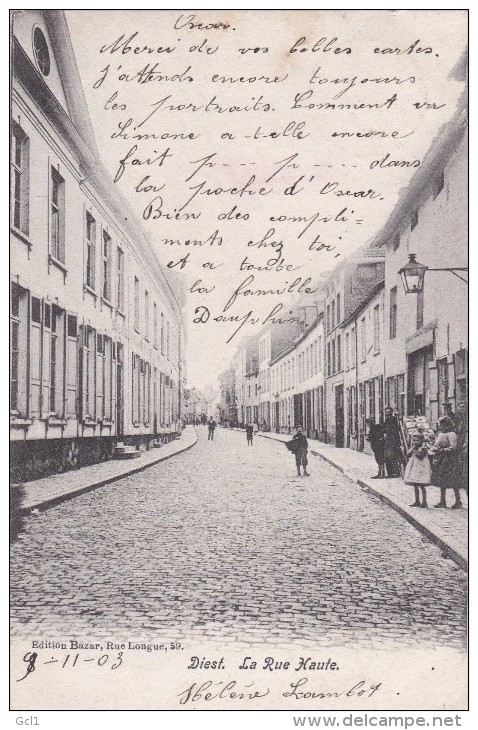 Oscar.
Merci de vos belles cartes.
J'attends encore toujours
les portraits. Comment va
Simone a-t-elle encore
fait p---- p---- dans
la poche d'Oscar.
Bien des compli-
ments chez toi,
et a toute
la famille
Dauphin
Edition Bazar, Rue Longue, 59.
9-11-03
Diest. La Rue Haute.
Hélène Lambot.
Gcl1
http://www.delcampe.net